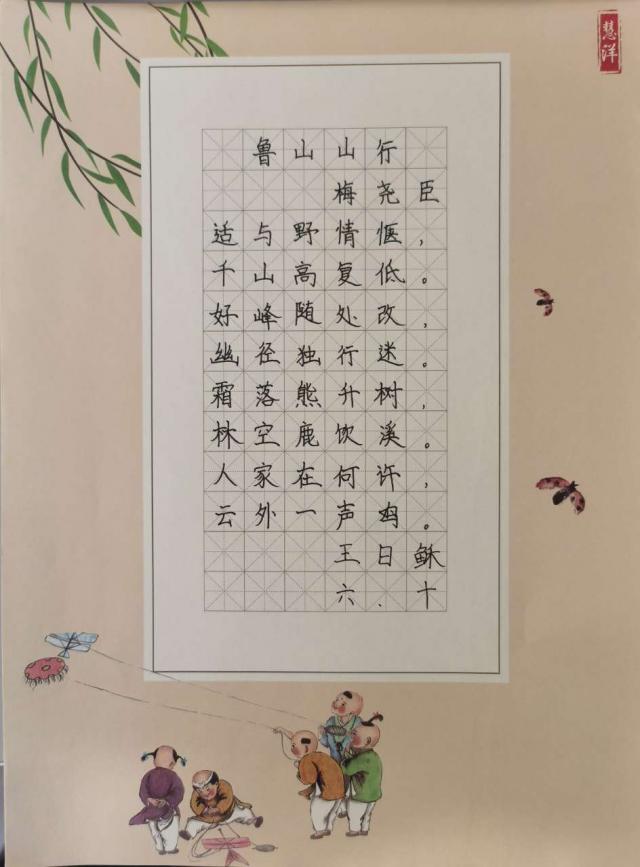 慧洋
鲁山山行
梅尧臣
适与野情惬，
千山高复低。
好峰随处改，
幽径独行迷。
霜落熊升树，
林空鹿饮溪。
人家在何许，
云外一声鸡。
王日稣
六.十